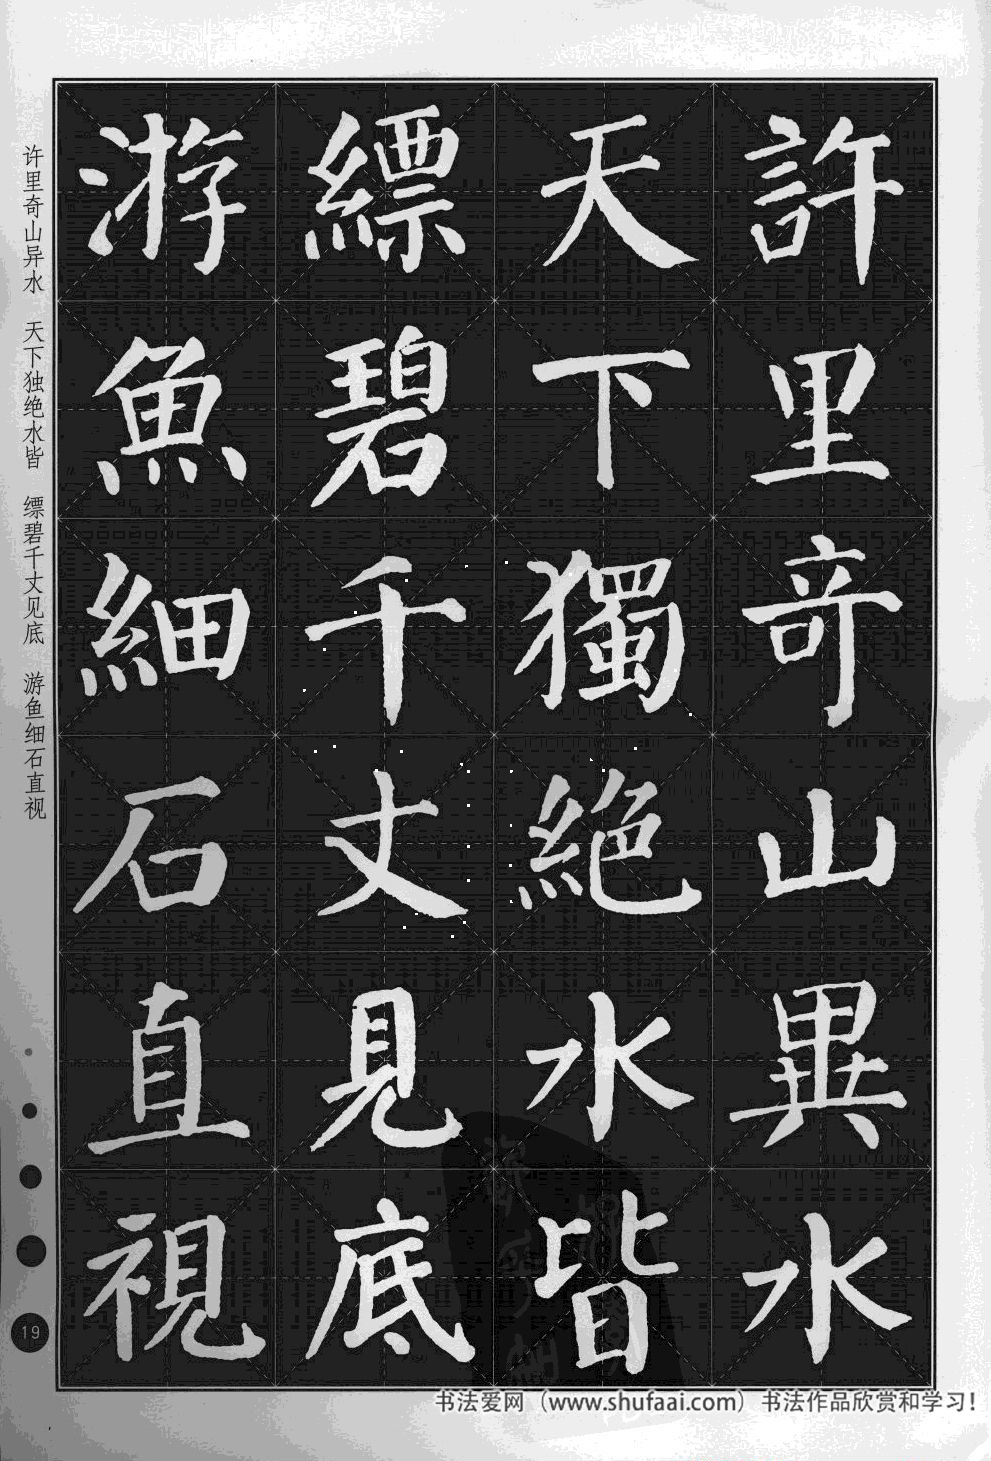 許里奇山異水
天下獨絕水皆
縹碧千丈見底
游魚細石直視
许里奇山异水 天下独绝水皆 缥碧千丈见底 游鱼细石直视
19
书法爱网（www.shufaai.com）书法作品欣赏和学习！